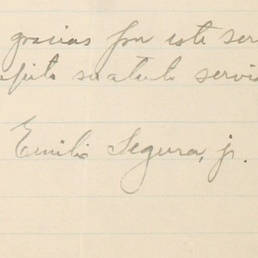 gracias por este ser
su atento servi
Emilio Segura, jr.